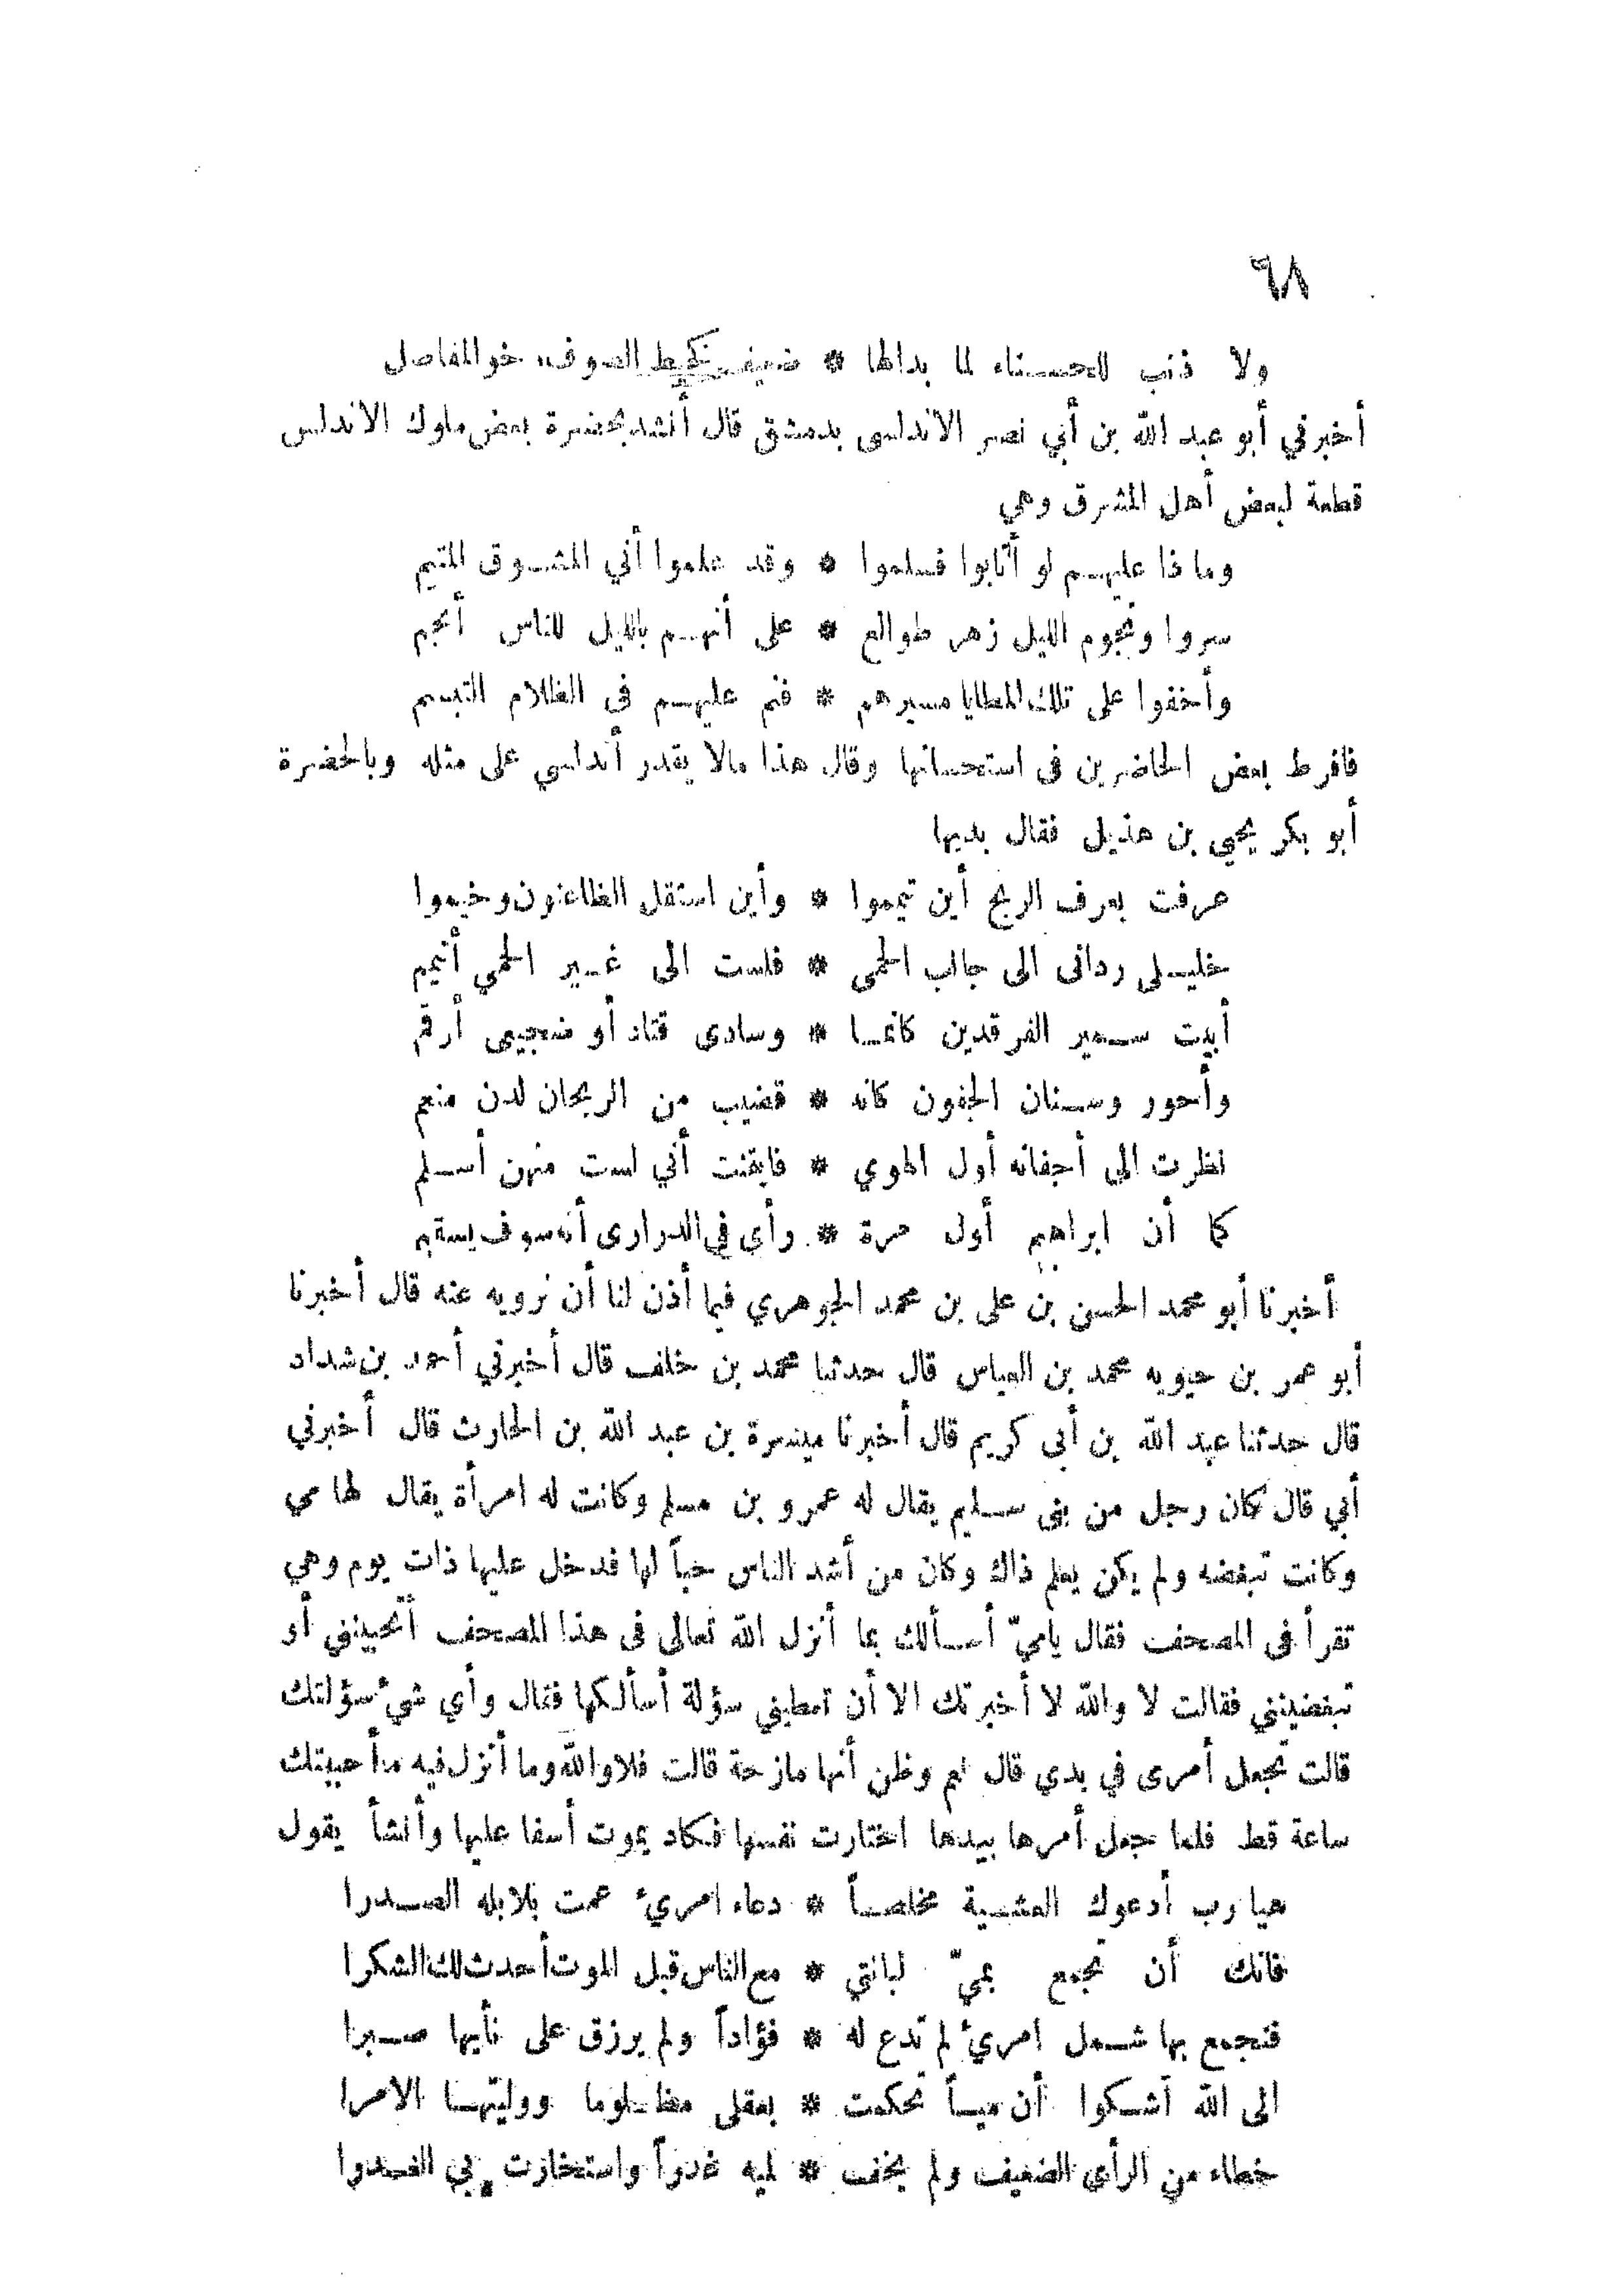 ٦٨
ولا ذنب للحسناء لما بدالها * ضعيف كخيط الصوف خو المفاصل
أخبرني أبو عبد الله بن أبي نصر الاندلسى بدمشق قال أنشد بحضرة بعض ملوك الاندلس
قطعة لبعض أهل المشرق وهي
وما ذا عليهم لو أثابوا فسلموا * وقد علموا أني المشوق المتيم
سروا ونجوم الليل زهر طوالع * على أنهم بالليل للناس أنجم
وأخفوا على تلك المطايا مسيرهم * فنم عليهم في الظلام التبسم
فافرط بعض الحاضرين فى استحسانها وقال هذا مالا يقدر أندلسي على مثله وبالحضرة
أبو بكر يحيى بن هذيل فقال بديها
عرفت بعرف الريح أين تيمموا * وأين استقل الظاعنون وخيموا
خليلى ردانى الى جانب الحمى * فلست الى غير الحمي أتيمم
أبيت سمير الفرقدين كانما * وسادى قتاد أو ضجيعى أرقم
وأحور وسنان الجفون كانه * قضيب من الريحان لدن منعم
نظرت الى أجفانه أول الهوي * فايقنت أني لست منهن أسلم
كما أن ابراهيم أول مرة * رأى في الدرارى أنه سوف يسقم
أخبرنا أبو محمد الحسن بن على بن محمد الجوهري فيما أذن لنا أن نرويه عنه قال أخبرنا
أبو عمر بن حيويه محمد بن العباس قال حدثنا محمد بن خلف قال أخبرني أحمد بن شداد
قال حدثنا عبد الله بن أبى كريم قال أخبرنا ميسرة بن عبد الله بن الحارث قال أخبرني
أبي قال كان رجل من بنى سليم يقال له عمرو بن مسلم وكانت له امرأة يقال لها مي
وكانت تبغضه ولم يكن يعلم ذاك وكان من أشد الناس حباً لها فدخل عليها ذات يوم وهي
تقرأ فى المصحف فقال يامىّ أسألك بما أنزل الله تعالى فى هذا المصحف أتحبيننى أو
تبغضيننى فقالت لا والله لا أخبرتك الا أن تعطينى سؤلة أسألكها فقال وأي شيء سؤلتك
قالت تجعل أمرى في يدي قال نعم وظن أنها مازحة قالت فلا والله وما أنزل فيه ما أحببتك
ساعة قط فلما جعل أمرها بيدها اختارت نفسها فكاد يموت أسفا عليها وأنشأ يقول
هيا رب أدعوك العشية مخلصاً * دعاء امرئ عمت بلابله الصدرا
فانك أن تجمع بمىّ لبانتي * مع الناس قبل الموت أحدث لك الشكرا
فتجمع بها شمل امرئ لم تدع له * فؤاداً ولم يرزق على نأيها صبرا
الى الله أشكوا أن مياً تحكمت * بعقلى مظلوما ووليتها الامرا
خطاء من الرأى الضعيف ولم يخف * لميه غدراً واستخارت بى الغدرا